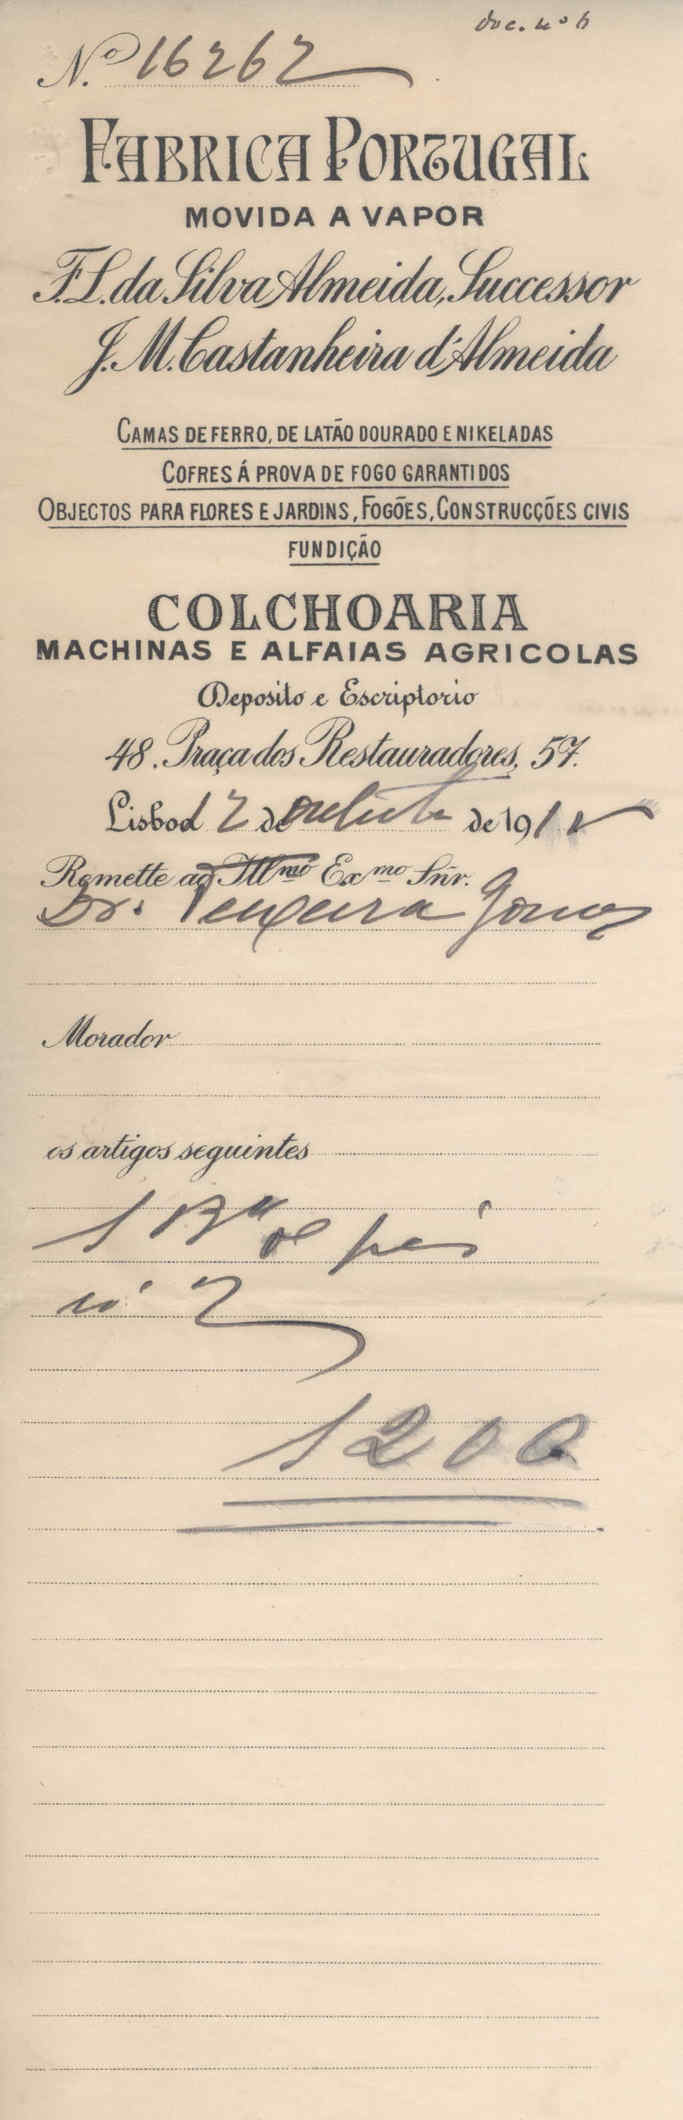 doc. nº 6
N.º 16262
FABRICA PORTUGAL
MOVIDA A VAPOR
F. L. da Silva Almeida, Successor
J. M. Castanheira d'Almeida
CAMAS DE FERRO, DE LATÃO DOURADO E NIKELADAS
COFRES Á PROVA DE FOGO GARANTIDOS
OBJECTOS PARA FLORES E JARDINS, FOGÕES, CONSTRUCÇÕES CIVIS
FUNDIÇÃO
COLCHOARIA
MACHINAS E ALFAIAS AGRICOLAS
Deposito e Escriptorio
48. Praça dos Restauradores, 57.
Lisboa 2 de de 191
Remette ao Illmo Exmo Snr.
Dr. Teixeira Gomes
Morador
os artigos seguintes
1 de
nº 2
1200